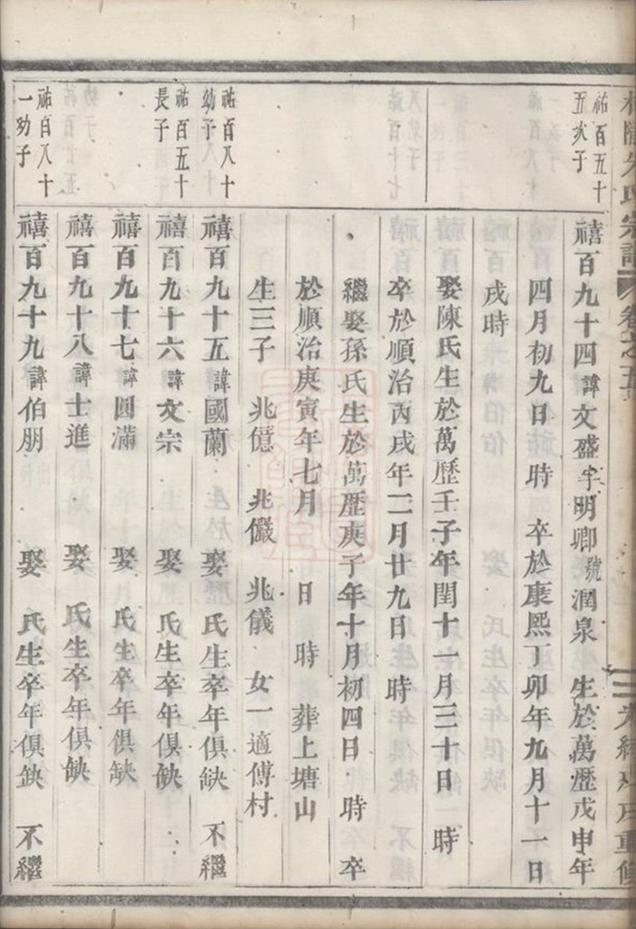 氏宗譜 卷之五
祐百五十
五次子
禧百九十四諱文盛字明卿號潤泉 生於萬歷戊申年
四月初九日 時 卒於康熙丁卯年九月十一日
戌時
娶陳氏生於萬歷壬子年閏十一月三十日 時
卒於順治丙戌年二月廿九日 時
繼娶孫氏生於萬歷庚子年十月初四日 時 卒
於順治庚寅年七月 日 時 葬上塘山
生三子 兆億 兆儼 兆儀 女一適傅村
祐百八十
幼子
禧百九十五諱國蘭 娶 氏生卒年俱缺 不繼
祐百五十
長子
禧百九十六諱文宗 娶 氏生卒年俱缺
禧百九十七諱圓滿 娶 氏生卒年俱缺
禧百九十八諱士進 娶 氏生卒年俱缺
祐百八十
一幼子
禧百九十九諱伯朋 娶 氏生卒年俱缺 不繼